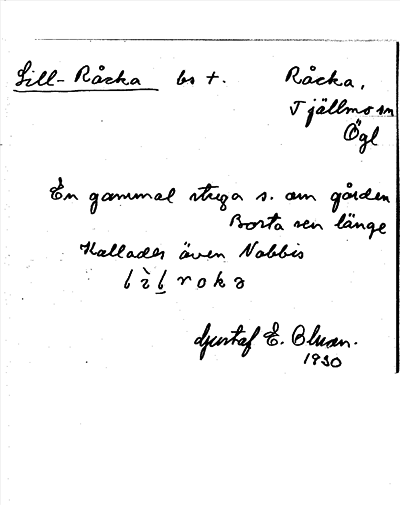 Lill-Råcka bs †. Råcka,
Tjällmo sn
Ögl
En gammal stuga s. om gården
Borta sen länge
Kallades även Nabbis
Gustaf E. Bluan.
1930